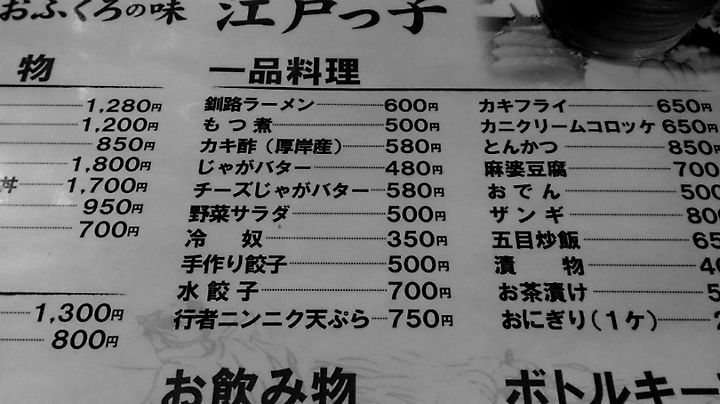 おふくろの味 江戸っ子
物
1,280円
1,200円
850円
1,800円
丼 1,700円
950円
700円
1,300円
800円
一品料理
釧路ラーメン 600円
もつ煮 500円
カキ酢（厚岸産） 580円
じゃがバター 480円
チーズじゃがバター 580円
野菜サラダ 500円
冷 奴 350円
手作り餃子 500円
水餃子 700円
行者ニンニク天ぷら 750円
カキフライ 650円
カニクリームコロッケ 650円
とんかつ 850円
麻婆豆腐 700
おでん 500
ザンギ 800
五目炒飯 65
漬 物
お茶漬け
おにぎり（1ケ）
お飲み物
ボトルキー